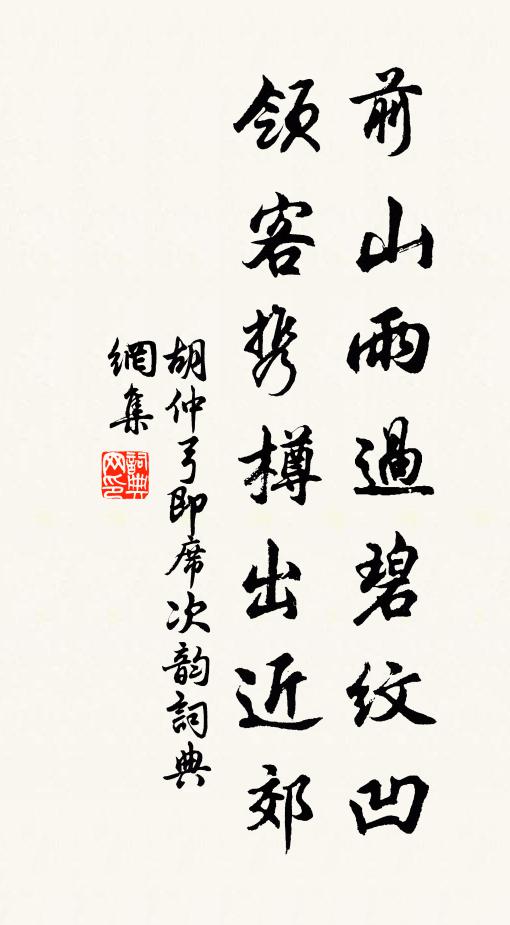 前山雨過碧紋凹
領客携樽出近郊
胡仲弓即席次韵詞典
網集
詞典網印